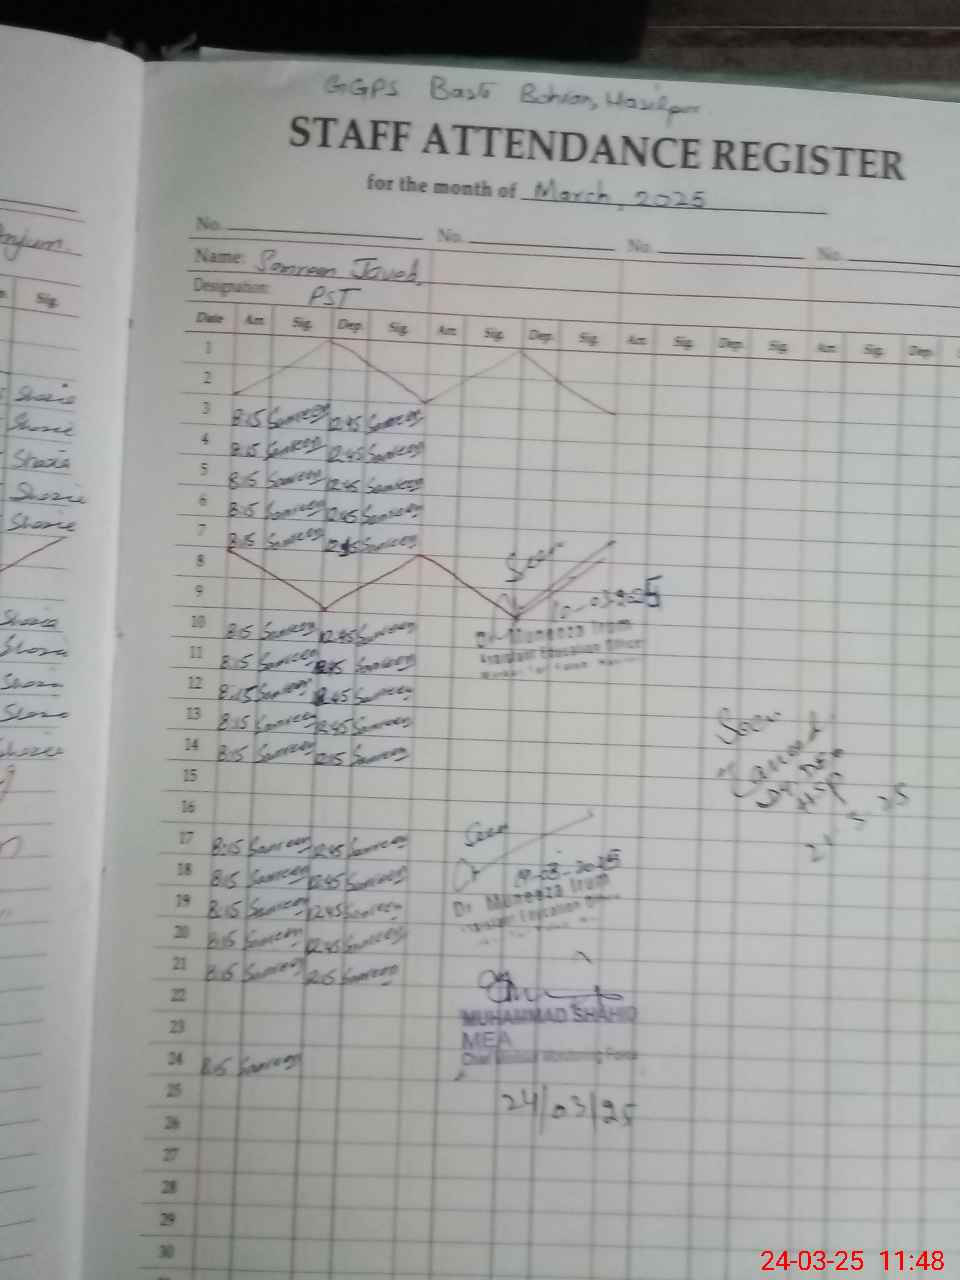 GGPS Basti Bohran, Hasilpur
STAFF ATTENDANCE REGISTER
for the month of March, 2025
No. No. No. No.
Name: Samreen Javed.
Designation: PST
Date Arr. Sig. Dep. Sig. Arr. Sig. Dep. Sig. Arr. Sig. Dep. Sig. Arr. Sig. Dep.
1
2
3 8:15 Samreen 12:45 Samreen
4 8:15 Samreen 12:45 Samreen
5 8:15 Samreen 12:45 Samreen
6 8:15 Samreen 12:45 Samreen
7 8:15 Samreen Samreen
8
9
10 8:15 Samreen 12:45 Samreen
11 8:15 Samreen 12:45 Samreen
12 8:15 Samreen 12:45 Samreen
13 8:15 Samreen 12:45 Samreen
14 8:15 Samreen 12:15 Samreen
15
16
17 8:15 Samreen 12:45 Samreen
18 8:15 Samreen 12:45 Samreen
19 8:15 Samreen 12:45 Samreen
20 8:15 Samreen 12:45 Samreen
21 8:15 Samreen 12:15 Samreen
22
23
24 8:15 Samreen
25
26
27
28
29
30
Seen
Dr. Muneeza Irum
Assistant Education Officer
Seen
Seen
Dr. Muneeza Irum
Assistant Education Officer
MUHAMMAD SHAHID
MEA
Chief Minister Monitoring Force
24/03/25
Sig.
Shazia
Shazia
Shazia
Shazia
Shazia
Shazia
Shazia
Shazia
Shazia
Shazia
24-03-25 11:48